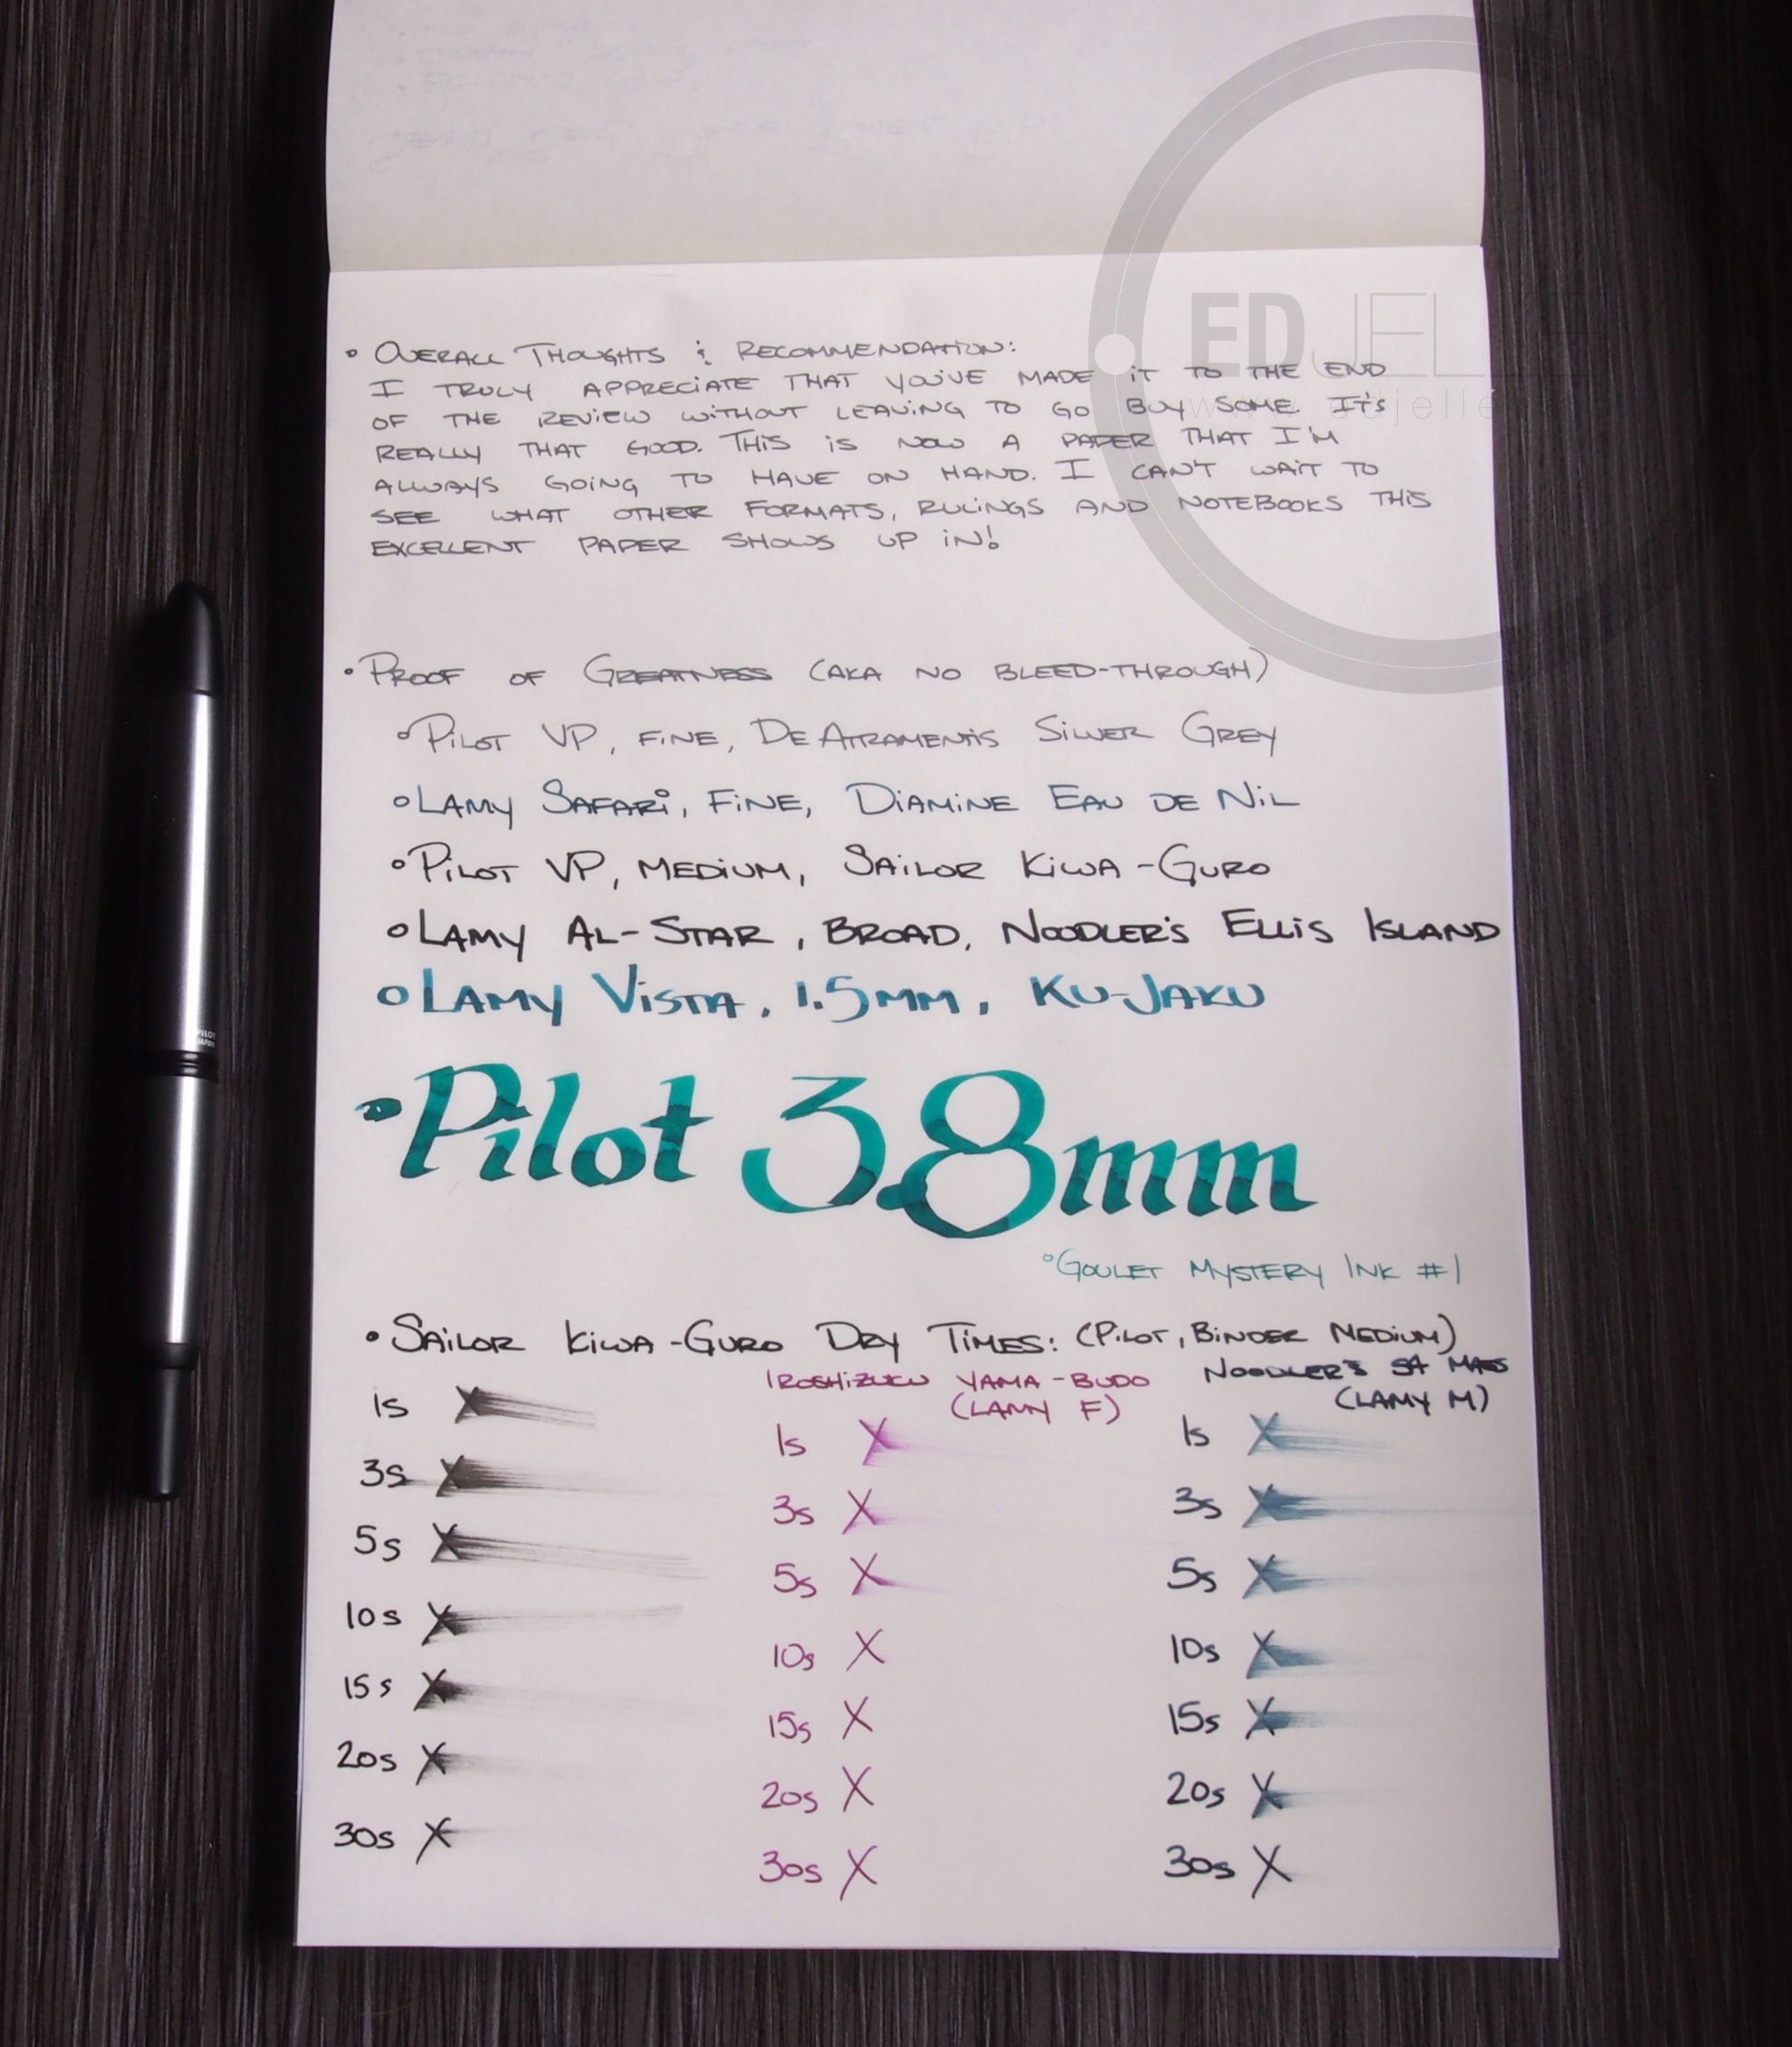 ED JEL
www.edjelle
• OVERALL THOUGHTS & RECOMMENDATION:
I TRULY APPRECIATE THAT YOU'VE MADE IT TO THE END
OF THE REVIEW WITHOUT LEAVING TO GO BUY SOME. IT'S
REALLY THAT GOOD. THIS IS NOW A PAPER THAT I'M
ALWAYS GOING TO HAVE ON HAND. I CAN'T WAIT TO
SEE WHAT OTHER FORMATS, RULINGS AND NOTEBOOKS THIS
EXCELLENT PAPER SHOWS UP IN!
• PROOF OF GREATNESS (AKA NO BLEED-THROUGH)
• PILOT VP, FINE, DE ATRAMENTIS SILVER GREY
• LAMY SAFARI, FINE, DIAMINE EAU DE NIL
• PILOT VP, MEDIUM, SAILOR KIWA-GURO
• LAMY AL-STAR, BROAD, NOODLER'S ELLIS ISLAND
• LAMY VISTA, 1.5MM, KU-JAKU
PILOT
JAPAN
• Pilot 3.8mm
• GOULET MYSTERY INK #1
• SAILOR KIWA-GURO DRY TIMES: (PILOT, BINDER MEDIUM)
1s
3s
5s
10s
15s
20s
30s
IROSHIZUKU YAMA-BUDO
(LAMY F)
1s
3s
5s
10s
15s
20s
30s
NOODLER'S 54 MASS
(LAMY M)
1s
3s
5s
10s
15s
20s
30s